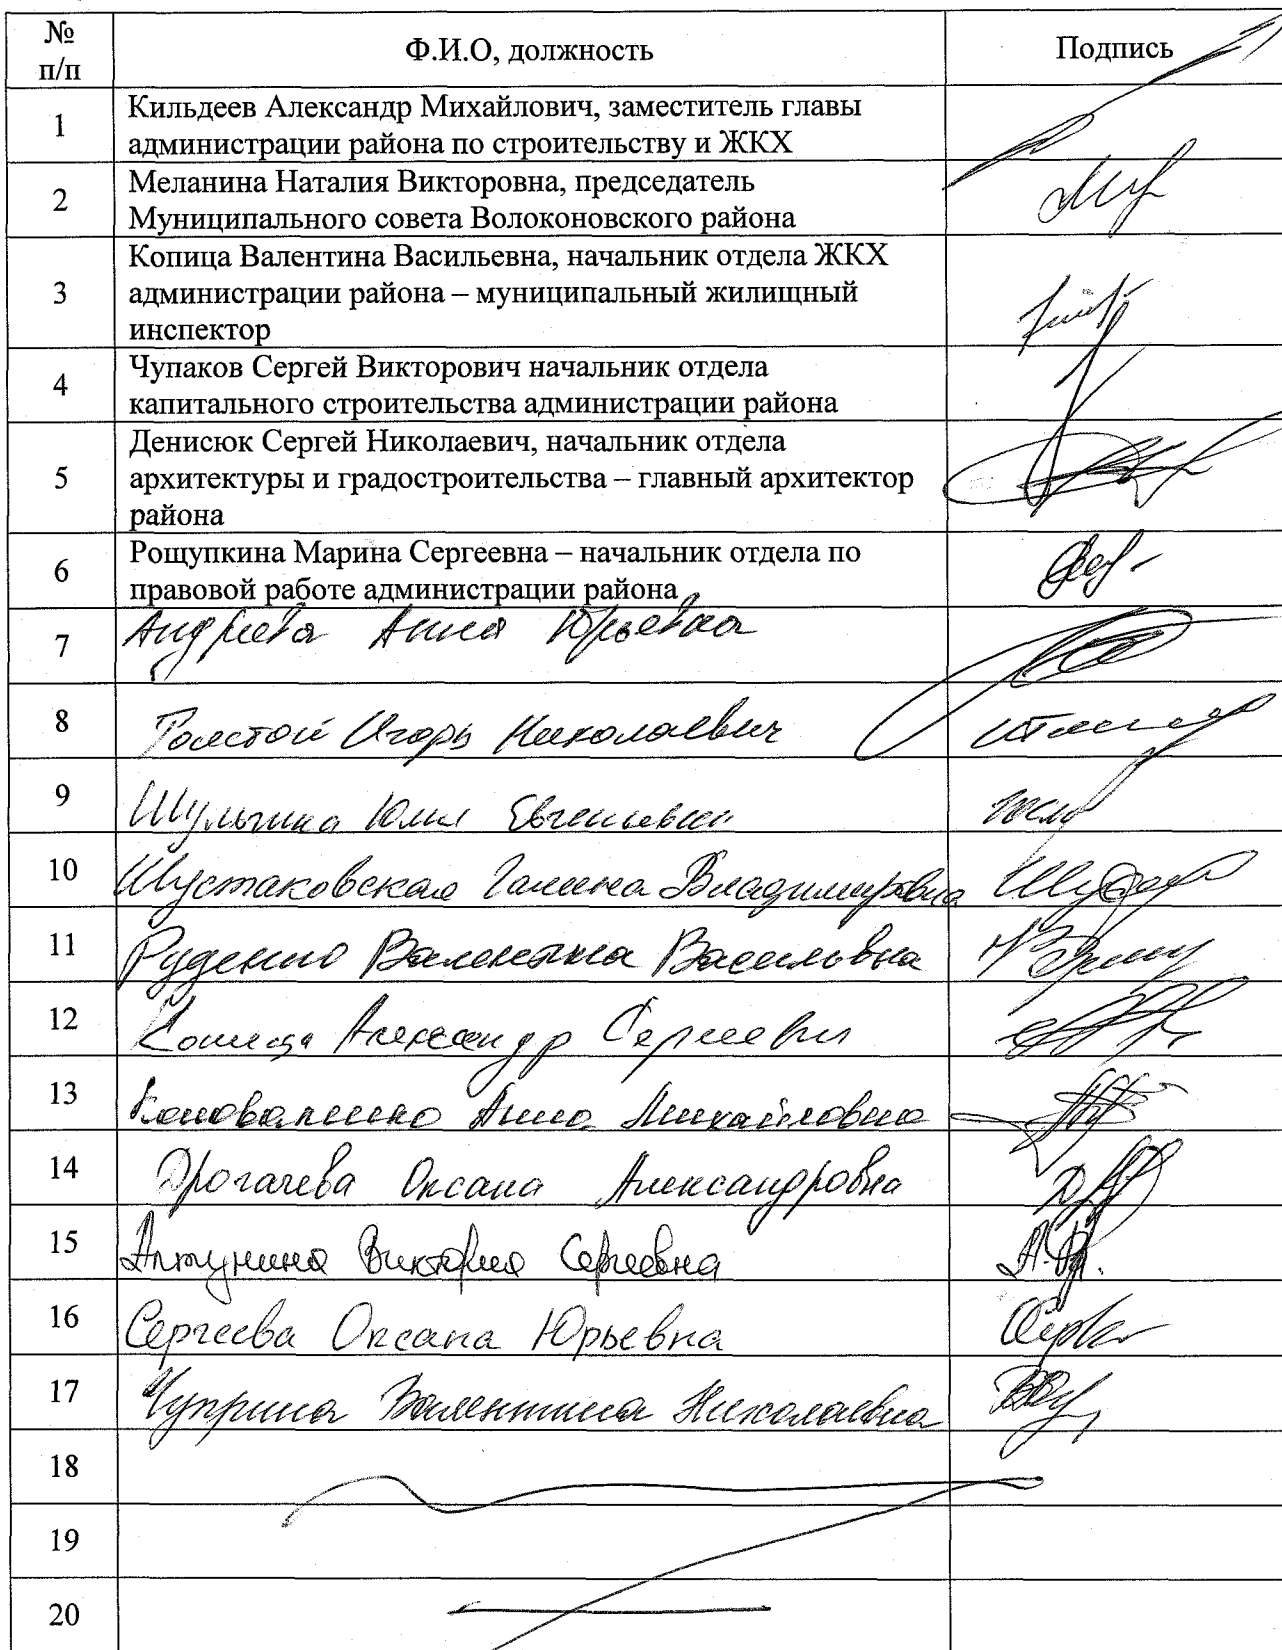 № п/п Ф.И.О, должность Подпись
1 Кильдеев Александр Михайлович, заместитель главы
администрации района по строительству и ЖКХ
2 Меланина Наталия Викторовна, председатель
Муниципального совета Волоконовского района
Копица Валентина Васильевна, начальник отдела ЖКХ
3 администрации района – муниципальный жилищный
инспектор
4 Чупаков Сергей Викторович начальник отдела
капитального строительства администрации района
Денисюк Сергей Николаевич, начальник отдела
5 архитектуры и градостроительства – главный архитектор
района
6 Рощупкина Марина Сергеевна – начальник отдела по
правовой работе администрации района
7 Андреева Анна Юрьевна
8 Толстой Игорь Николаевич
9 Шульгина Юлия Евгеньевна
10 Шустаковская Галина Владимировна
11 Руденко Валентина Васильевна
12 Копица Александр Сергеевич
13 Коноваленко Анна Михайловна
14 Дрогачева Оксана Александровна
15 Алтунина Виктория Сергеевна
16 Сергеева Оксана Юрьевна
17 Чуприна Валентина Николаевна
18
19
20